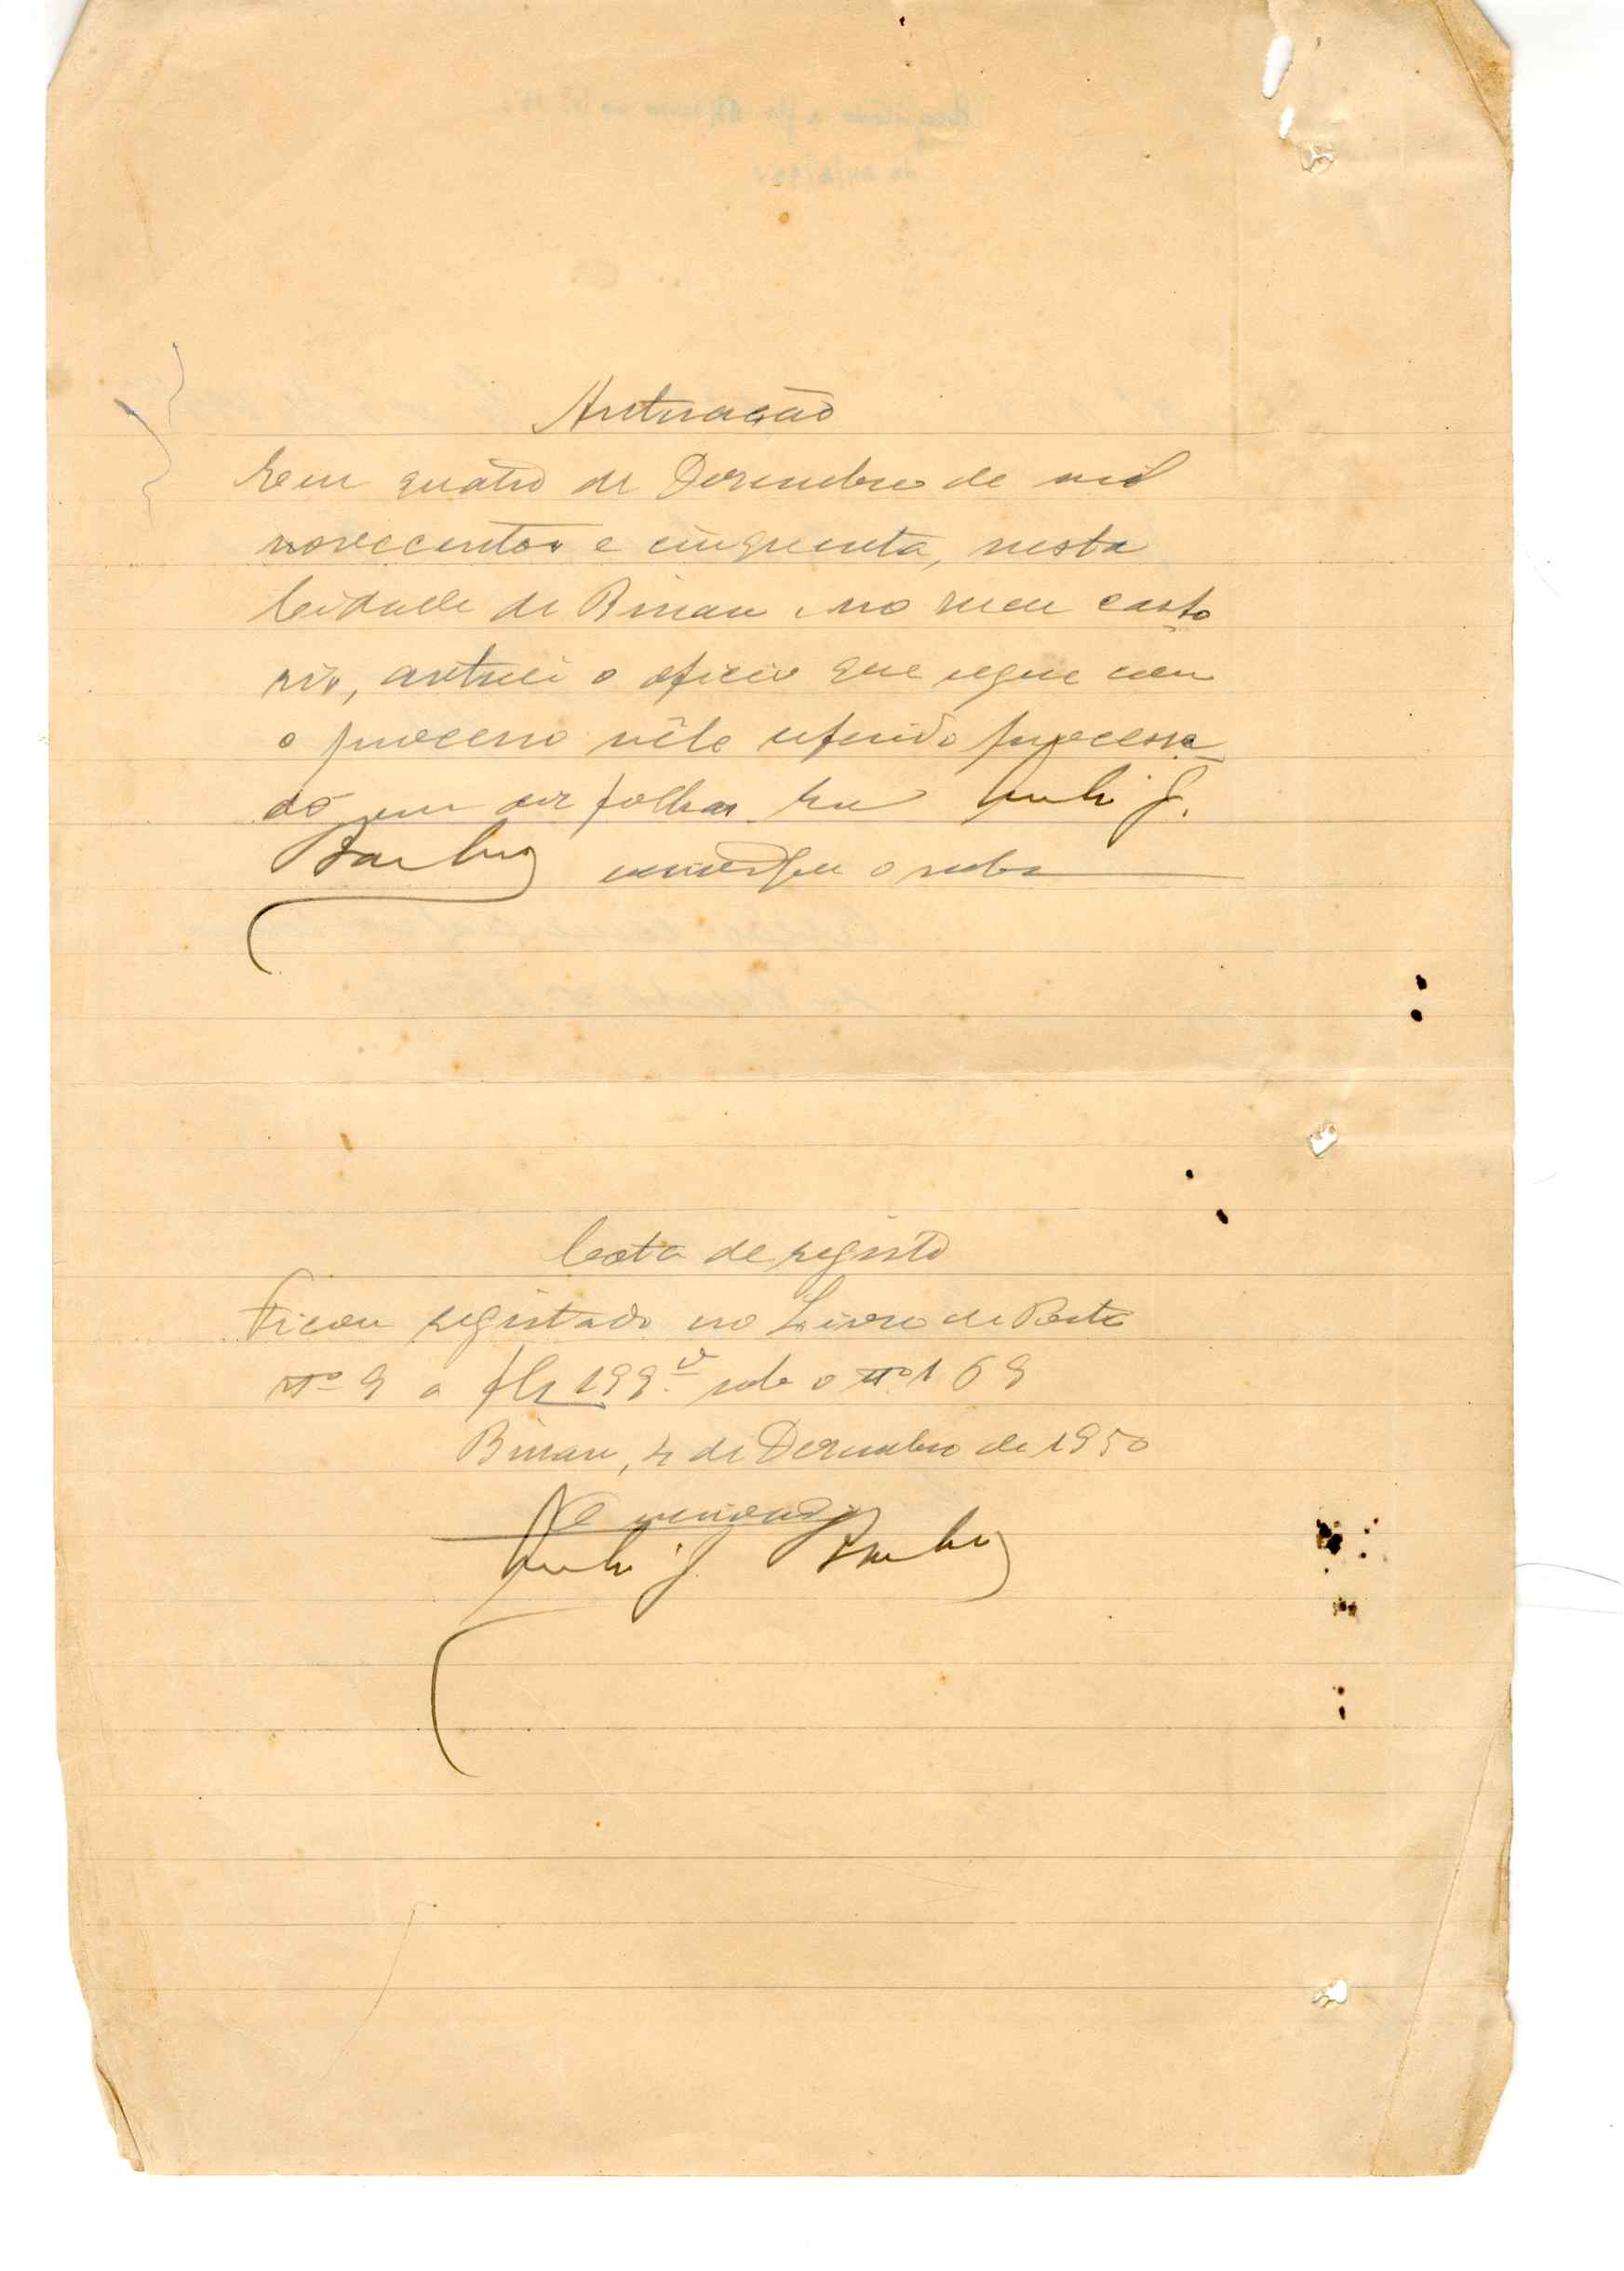 Autuação
Em quatro de Dezembro de mil
novecentos e cinquenta, nesta
Cidade de Bissau, no meu carto
rio, autuei o oficio que segue com
o processo nêle referido processa
do em dez folhas Eu
escrivão o subs
Cota de registo
Ficou registado no Livro de Porta
nº 9 a fls 199v sob o nº 169
Bissau, 4 de Dezembro de 1950
O escrivão